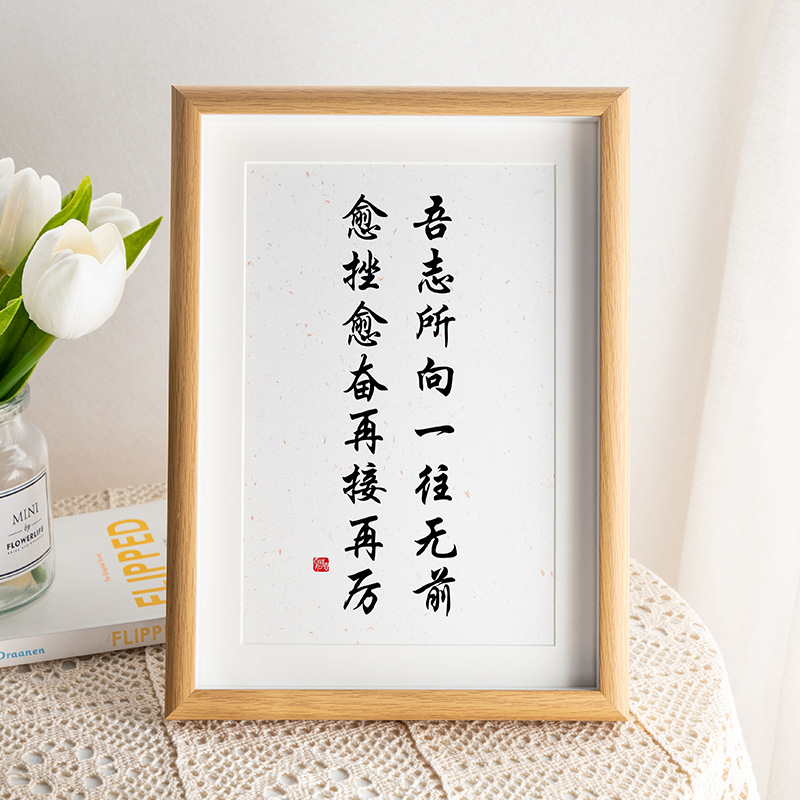 吾志所向一往无前
愈挫愈奋再接再厉
MINI
by
FLOWERLIFE
FLIPPED
FLIPP
Draanen